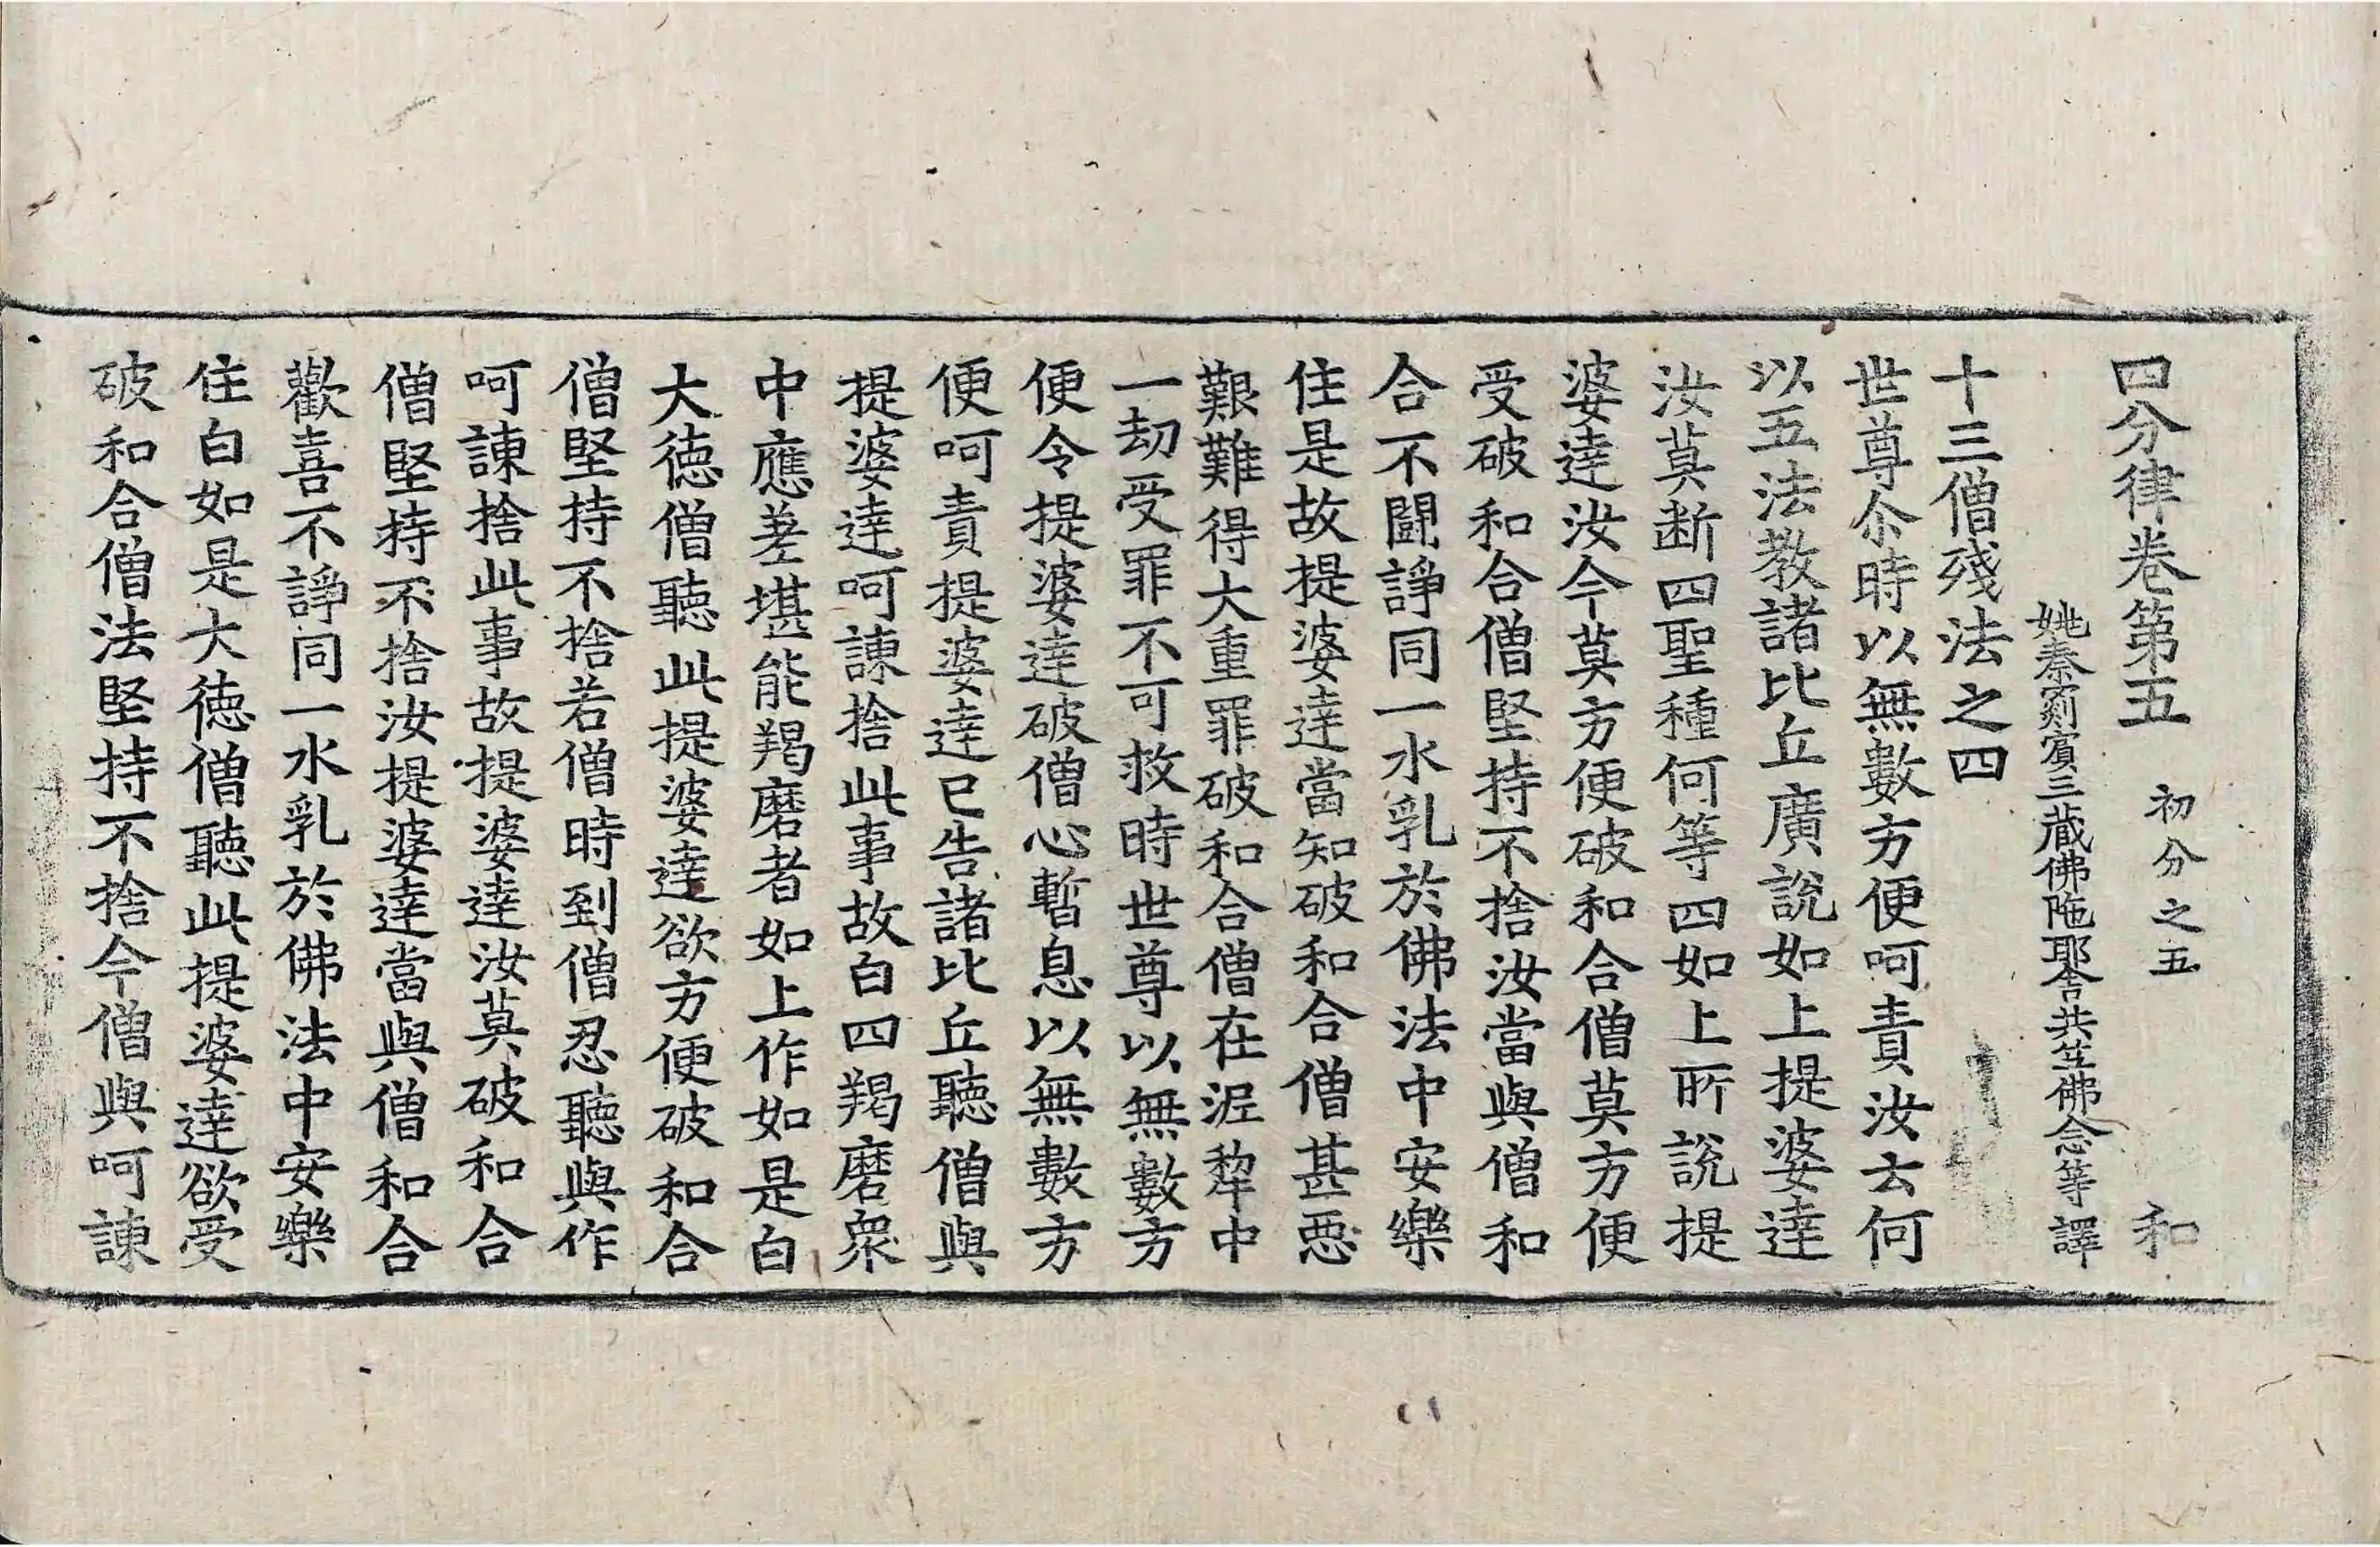 四分律卷第五 初分之五 和
姚秦罽賓三蔵佛陁耶舍共竺佛念等譯
十三僧殘法之四
世尊尒時以無數方便呵責汝云何
以五法教諸比丘廣說如上提婆達
汝莫断四聖種何等四如上所說提
婆達汝今莫方便破和合僧莫方便
受破和合僧堅持不捨汝當與僧和
合不鬪諍同一水乳於佛法中安樂
住是故提婆達當知破和合僧甚惡
艱難得大重罪破和合僧在泥犂中
一劫受罪不可救時世尊以無數方
便令提婆達破僧心暫息以無數方
便呵責提婆達已告諸比丘聽僧與
提婆達呵諫捨此事故白四羯磨衆
中應差堪能羯磨者如上作如是白
大德僧聽此提婆達欲方便破和合
僧堅持不捨若僧時到僧忍聽與作
呵諫捨此事故提婆達汝莫破和合
僧堅持不捨汝提婆達當與僧和合
歡喜不諍同一水乳於佛法中安樂
住白如是大德僧聽此提婆達欲受
破和合僧法堅持不捨今僧與呵諫